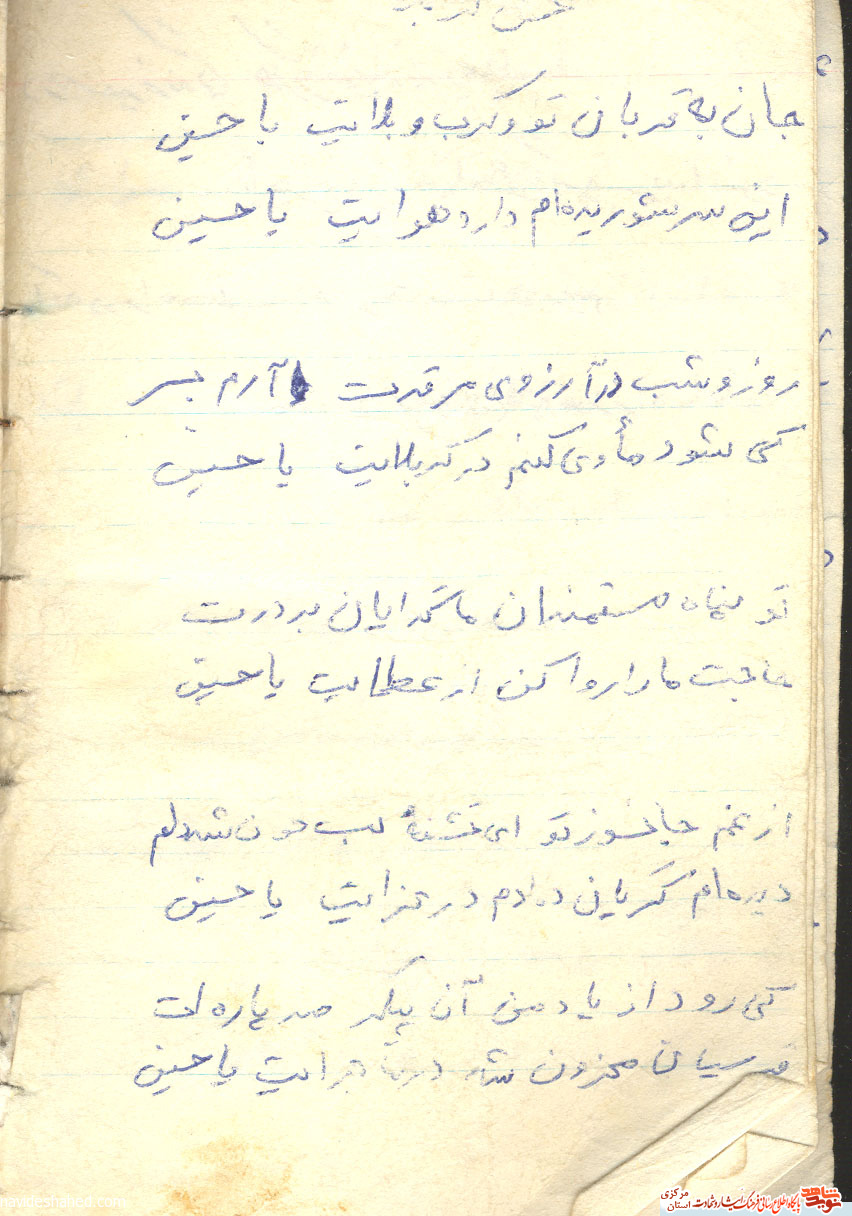 جان به قربان تو و کرب و بلایت یا حسین
این سر شوریده‌ام دارد هوایت یا حسین
روز و شب در آرزوی مرقدت آرم بسر
کی شود مأوی کنم در کربلایت یا حسین
تو پناه مستمندان ما گدایان بر درت
حاجت ما را روا کن از عطایت یا حسین
از غم جانسوز تو ای تشنهٔ لب خون شد دلم
دیده‌ام گریان دمادم در عزایت یا حسین
کی رود از یاد من آن پیکر صد پاره‌ات
قدسیان محزون شد در ماجرایت یا حسین
navideshahed.com
نوید شاهد
پایگاه اطلاع رسانی فرهنگ ایثار و شهادت
استان مرکزی